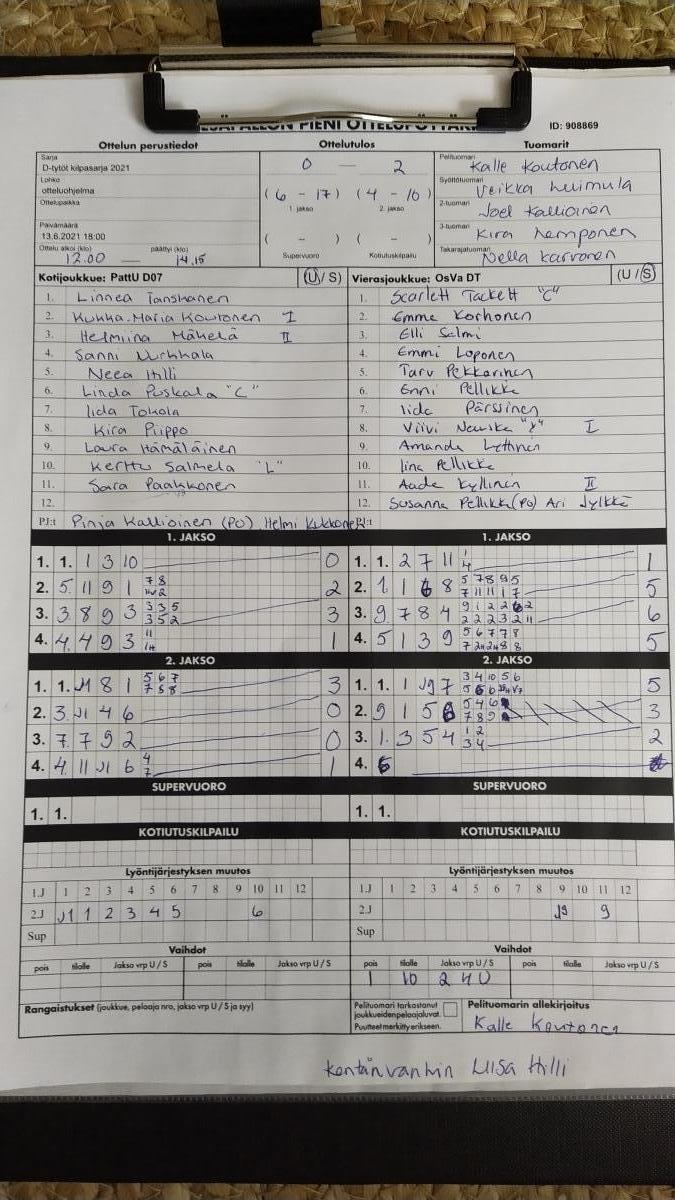 PESÄPALLON PIENI OTTELUPÖYTÄKIRJA
ID: 908869
Ottelun perustiedot
Sarja
D-tytöt kilpasarja 2021
Lohko
otteluohjelma
Ottelupaikka
Päivämäärä
13.6.2021 18:00
Ottelu alkoi (klo) päättyi (klo)
12.00 — 14.15
Ottelutulos
0 — 2
(6 - 17) (4 - 10)
1. jakso 2. jakso
( - ) ( - )
Supervuoro Kotiutuskilpailu
Tuomarit
Pelituomari Kalle Koutonen
Syöttötuomari Veikka
2-tuomari Joel Kallioinen
3-tuomari Kira Kemponen
Takarajatuomari Nella Karvonen
Kotijoukkue: PattU D07 (U / S)
1. Linnea Tanskanen
2. Kukka-Maria Koutonen I
3. Helmiina Mäkelä II
4. Sanni
5. Neea Hilli
6. Linda Puskala "C"
7. Iida Tokola
8. Kira Piippo
9. Laura Hämäläinen
10. Kerttu Salmela "L"
11. Sara Paakkonen
12.
PJ:t Pinja Kallioinen (PO) Helmi Kukkonen
Vierasjoukkue: OsVa DT (U / S)
1. Scarlett Tackett "C"
2. Emme Korhonen
3. Elli Salmi
4. Emmi Loponen
5. Taru Pekkarinen
6. Enni Pellikka
7. Iida Pärssinen
8. Viivi I
9. Amanda Lehtinen
10. Iina Pellikka
11. Aada Kyllinen II
12.
PJ:t Susanna Pellikka (PO) Ari Jylkkä
1. JAKSO
1. 1. 1 3 10 0
2. 5 11 9 1 2
3. 3 8 9 3 3 3 5 3 5 2 3
4. 4 4 9 3 1
2. JAKSO
1. 1. J1 8 1 5 6 7 7 8 8 3
2. 3 J1 4 6 0
3. 7 7 9 2 0
4. 4 11 J1 6 4 7 1
SUPERVUORO
1. 1.
KOTIUTUSKILPAILU
1. JAKSO
1. 1. 2 7 11 1 4 1
2. 1 1 6 8 5 7 8 9 5 5
3. 9 7 8 4 6
4. 5 1 3 9 5 6 7 7 8 5
2. JAKSO
1. 1. 1 J9 7 3 4 10 5 6 5
2. 9 1 5 6 5 4 6 7 8 9 3
3. 1 3 5 4 1 2 3 4 2
4.
SUPERVUORO
1. 1.
KOTIUTUSKILPAILU
Lyöntijärjestyksen muutos
1.J 1 2 3 4 5 6 7 8 9 10 11 12
2.J J1 1 2 3 4 5 6
Sup
Vaihdot
pois tilalle Jakso vrp U / S pois tilalle Jakso vrp U / S
Rangaistukset (joukkue, pelaaja nro, jakso vrp U / S ja syy)
Lyöntijärjestyksen muutos
1.J 1 2 3 4 5 6 7 8 9 10 11 12
2.J J9 9
Sup
Vaihdot
pois tilalle Jakso vrp U / S pois tilalle Jakso vrp U / S
1 10 2 4 U
Pelituomari tarkastanut
joukkueiden pelaajaluvat.
Puutteet merkitty erikseen.
Pelituomarin allekirjoitus
Kalle Koutonen
Kentänvanhin Liisa Hilli